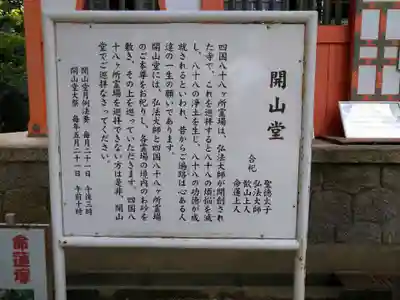 開山堂
合祀
聖徳太子
弘法大師
歓山上人
命蓮上人
四国八十八ヶ所霊場は、弘法大師が開創され
た寺で、これを巡拝すると八十八の煩悩を滅
し、八十八の浄土を生じ、八十八の功徳が成
就されるといわれ、昔からご遍路は心ある人
達の一生の願いであります。
開山堂には、弘法大師と四国八十八ヶ所霊場
のご本尊をお祀りし、各霊場の境内のお砂を
敷き、その上を巡っていただきます。四国八
十八ヶ所霊場を巡拝できない方は是非、開山
堂でご巡拝なさってください。
開山堂月例法要 毎月二十一日 午後三時
開山堂大祭 毎年五月二十一日 午前十時
命蓮塚